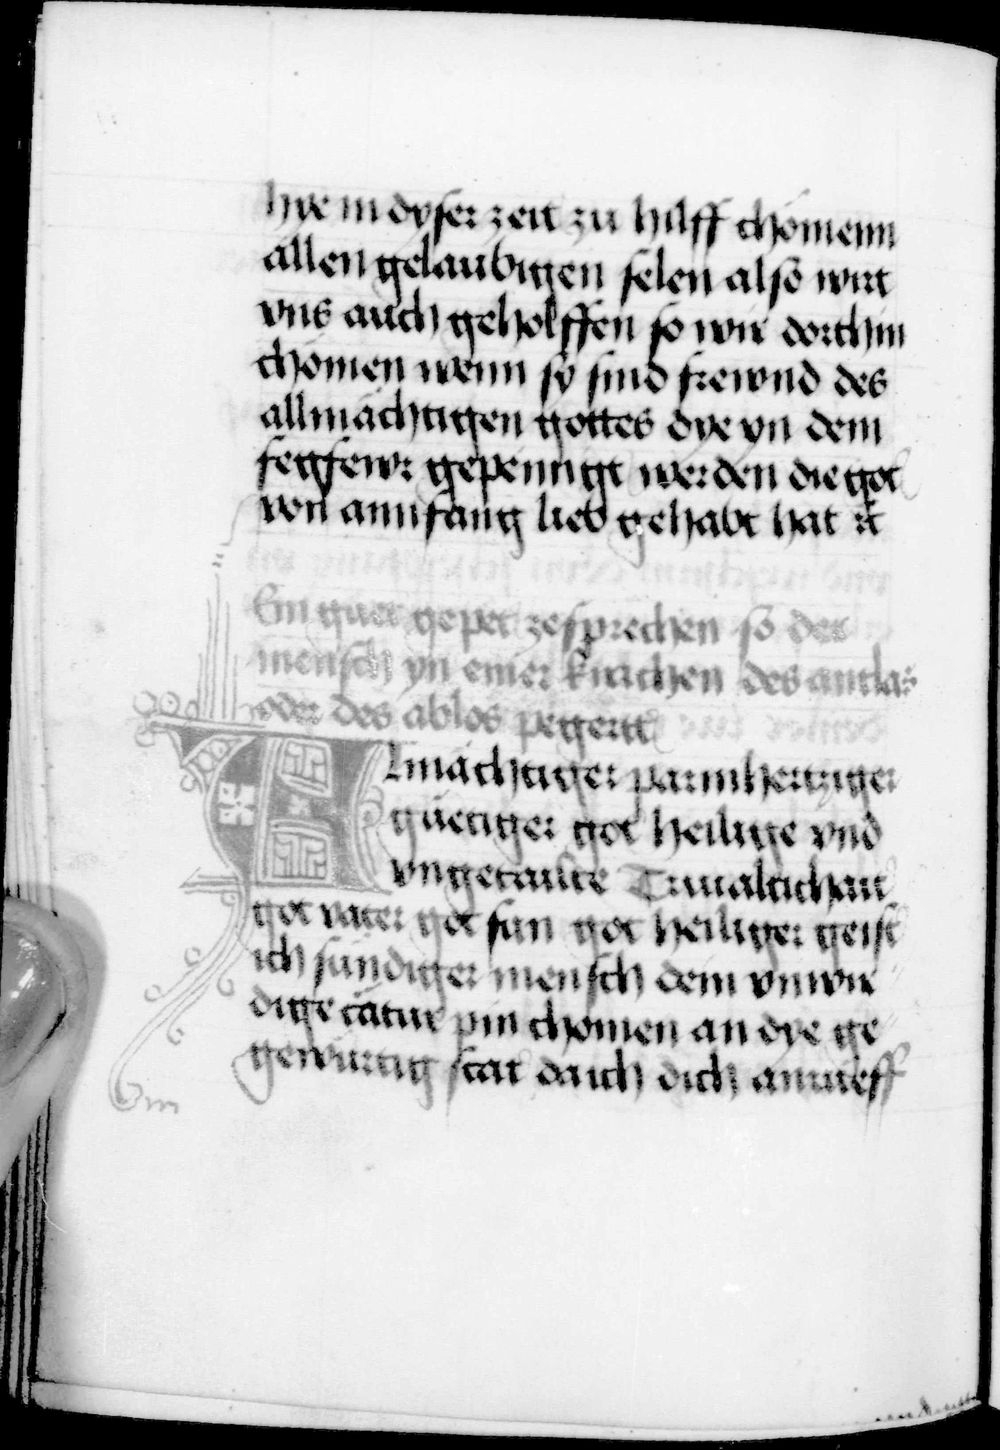 hye in dyser zeit zu hilff chömenn
allen gelaubigen selen also wirt
vns auch geholffen so wir dorthin
chömen wenn sy sind frewnd des
allmächtigen gottes dye yn dem
fegfewr gepeinigt werden die got
von annfanng lieb gehabt hat
Ein guet gepet zesprechen so der
mensch yn einer kirichen des antlas
oder des ablos pegertt
Almächtiger parmhertziger
güetiger got heilige vnd
vngetailte Triualtichait
got vater got sun got heiliger geist
ich sündiger mensch dein vnwir
dige cätur pin chomen an dye ge
gewürtig stat daich dich anrüeff